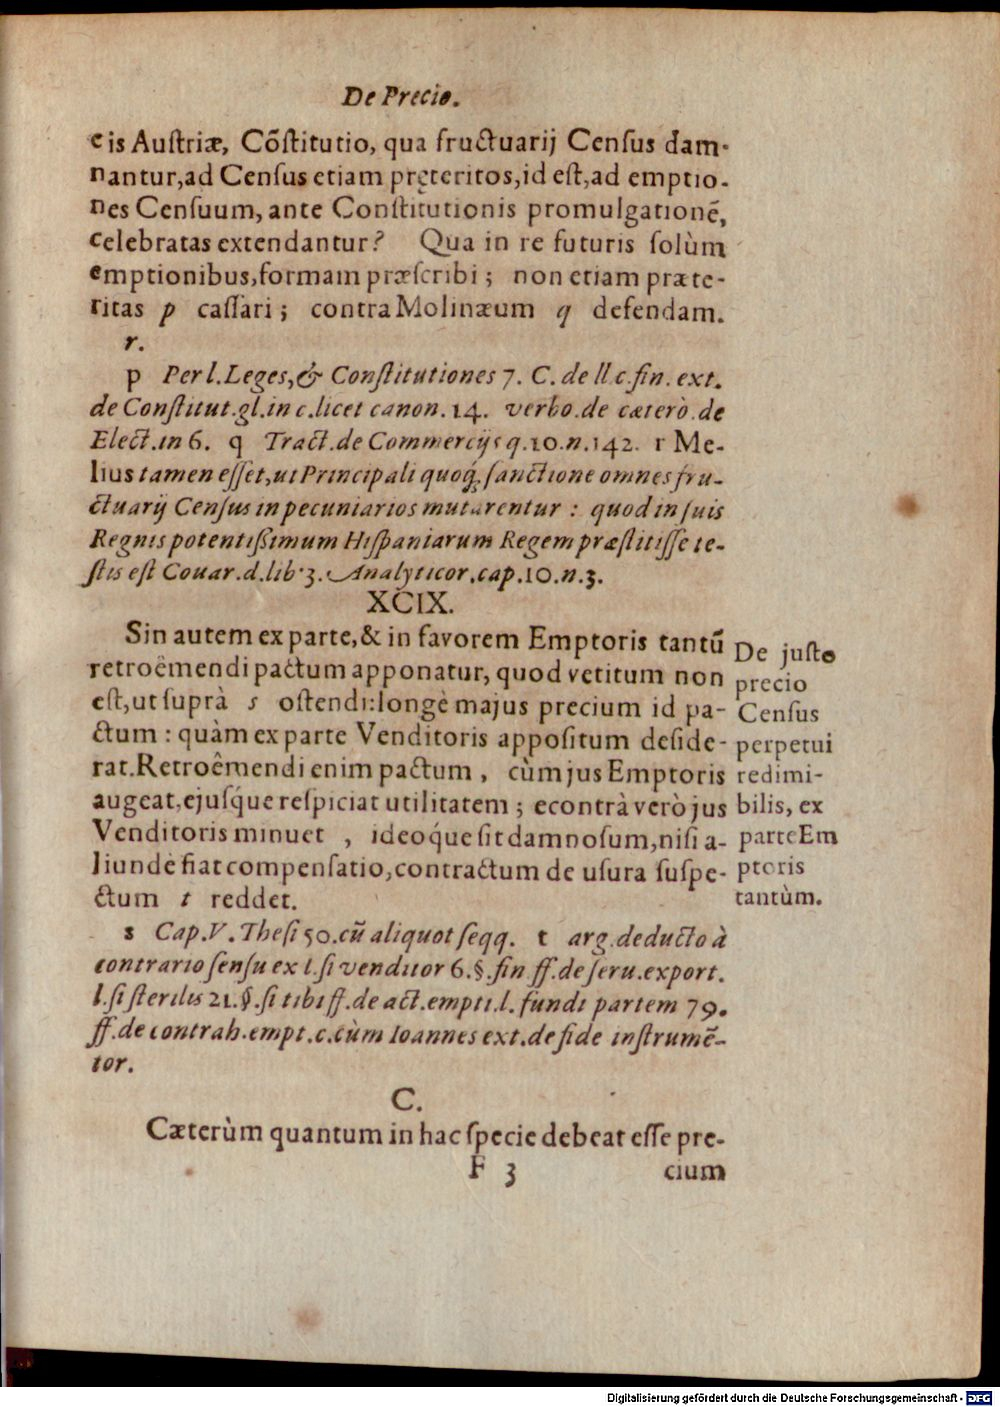 De Precio.
cis Auſtriæ, Cõſtitutio, qua fructuarij Cenſus dam-
nantur,ad Cenſus etiam pręteritos,id eſt,ad emptio-
nes Cenſuum, ante Conſtitutionis promulgationẽ,
celebratas extendantur? Qua in re futuris ſolùm
emptionibus,formam præſcribi; non etiam præte-
ritas p caſſari; contra Molinæum q defendam.
r.
p Per l. Leges,& Conſtitutiones 7. C. de ll.c.fin. ext.
de Conſtitut.gl.in c.licet canon.14. verbo.de cæterò.de
Elect.in 6. q Tract.de Commercijs q.10.n.142. r Me-
lius tamen eſſet,ut Principali quoq́; ſanctione omnes fru-
ctuarij Cenſus in pecuniarios mutarentur : quod in ſuis
Regnis potentißimum Hiſpaniarum Regem præſtitiſſe te-
ſtis eſt Couar.d.lib.3. Analyticor.cap.10.n.3.
XCIX.
Sin autem ex parte,& in favorem Emptoris tantũ
retroêmendi pactum apponatur, quod vetitum non
eſt,ut ſuprà s oſtendi:longè majus precium id pa-
ctum : quàm ex parte Venditoris appoſitum deſide-
rat.Retroêmendi enim pactum , cùm jus Emptoris
augeat,ejuſq́ue reſpiciat utilitatem ; econtrà verò jus
Venditoris minuet , ideoq́ue ſit damnoſum,niſi a-
liunde fiat compenſatio,contractum de uſura ſuſpe-
ctum t reddet.
De juſto
precio
Cenſus
perpetui
redimi-
bilis, ex
parte Em
ptoris
tantùm.
s Cap.V. Theſi 50.cũ aliquot ſeqq. t arg.deducto à
contrario ſenſu ex l.ſi venditor 6.§.fin ff.de ſeru.export.
l.ſi ſterilis 21.§.ſi tibi ff.de act.empti.l. fundi partem 79.
ff.de contrah.empt.c.cùm Ioannes ext.de fide inſtrumẽ-
tor.
C.
Cæterùm quantum in hac ſpecie debeat eſſe pre-
F 3 cium
Digitalisierung gefördert durch die Deutsche Forschungsgemeinschaft - DFG